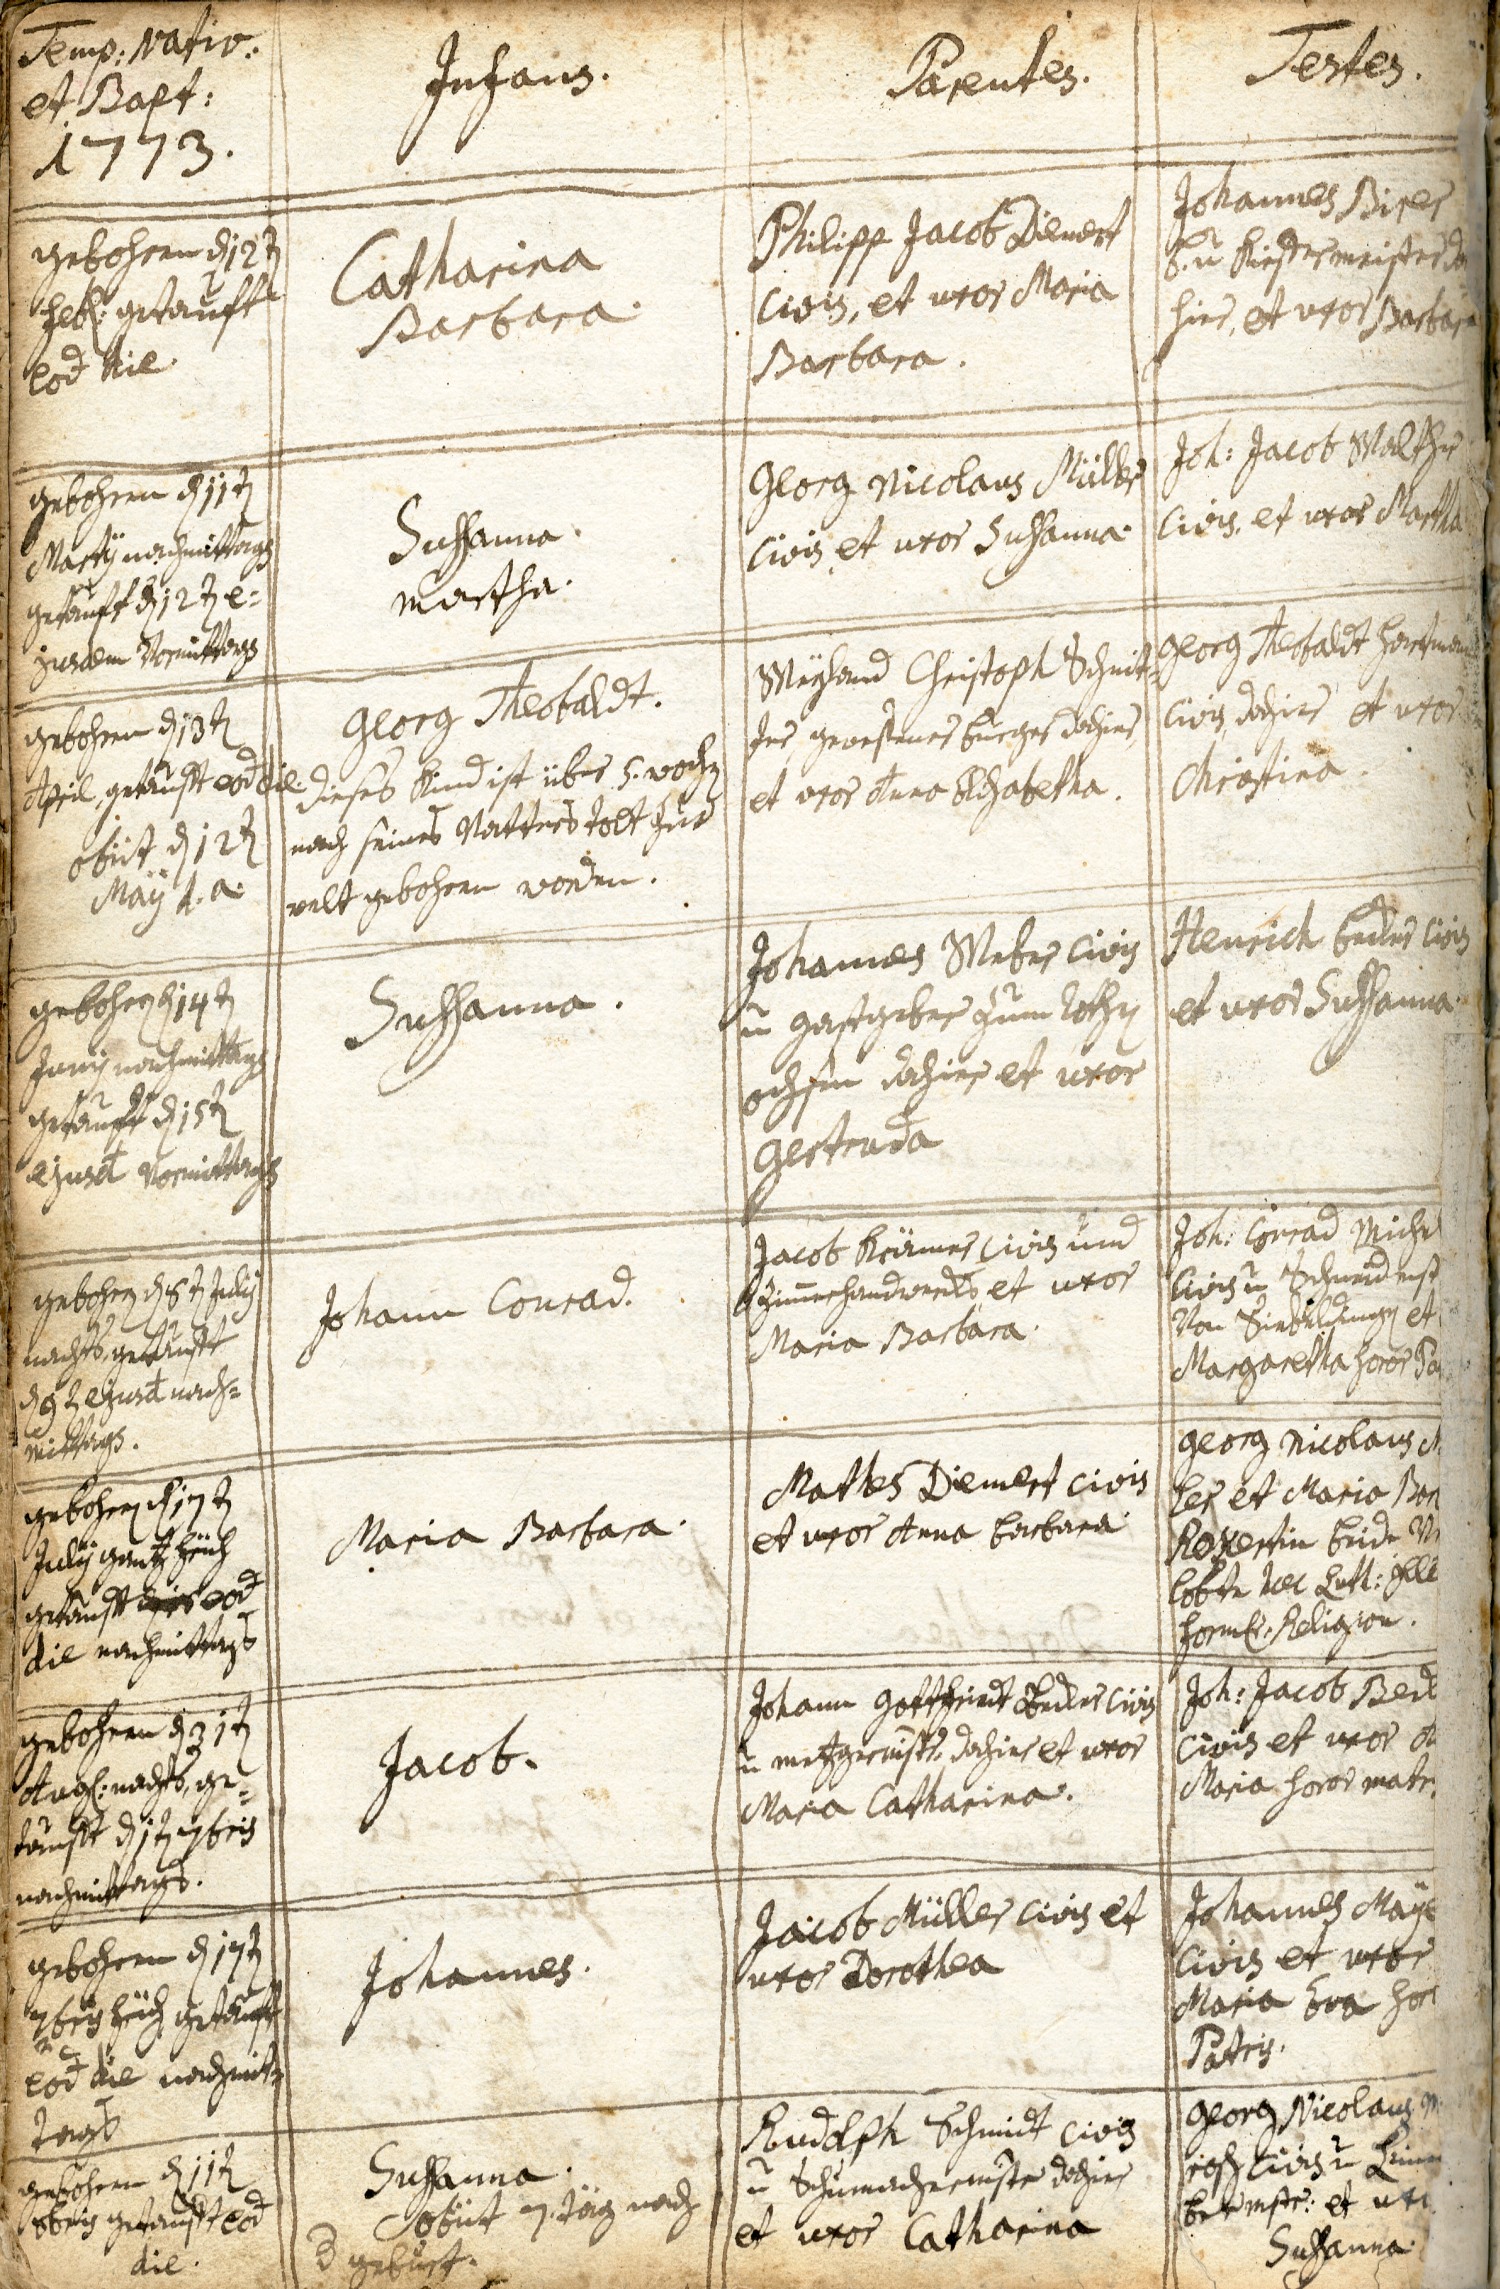 Temp: Nativ:
et Bapt:
1773.
Infans.
Parentes.
Testes.
gebohren d 12t
Feb: getaufft
eod die.
Catharina
Barbara.
Philipp Jacob Diemert
civis, et uxor Maria
Barbara.
Johannes
hier, et uxor Barbara
gebohren d 11t
Martij nachmittags
getaufft d 12t e=
jusdem Vormittags
Susanna.
Martha.
Georg Nicolaus Müller
civis et uxor Susanna.
Joh: Jacob Walther
civis, et uxor Martha
gebohren d 13t
April, getaufft eod die
obiit d 12t
Maÿ h. a.
Georg Theobaldt.
dieses Kind ist über 5. woch
nach seines Vatters todt zur
welt gebohren worden.
Weyland Christoph Schnit=
ter gewesener burger dahier,
et uxor Anna Elisabetha.
Georg Theobaldt Hartman
civis dahier et uxor
Christina.
gebohren d 14t
Junij nachmittags
getaufft d 15t
ejusd Vormittags
Susanna.
Johannes Weber civis
u gastgeber zum Rothen
ochsen dahier et uxor
Gertruda
Henrich becker civis
et uxor Susanna.
gebohren d 8t Julij
nachts, getaufft
d 9t ejusd nach=
mittags.
Johann Conrad.
Jacob Krämer civis und
Zimmerhandwercks et uxor
Maria Barbara.
Joh: Conrad Michel
civis u Schneid
Von Siebeldingen et
Margaretha soror Pa
gebohren d 17t
Julij gantz früh
getaufft eod
die nachmittags
Maria Barbara.
Mattes Diemert civis
et uxor Anna barbara.
Georg Nicolaus M
ler et Maria Bar
beide Ver
lobte Luth:
Religion.
gebohren d 31t
Aug: nachts, ge=
taufft d 1t 7bris
nachmittags.
Jacob.
Johann Gottfriedt Becker civis
u metzgermstr. dahier et uxor
Maria Catharina.
Joh: Jacob Beck
civis et uxor A
Maria soror matr.
gebohren d 17t
7bris früh, getaufft
eod die nachmit=
tags
Johannes.
Jacob Müller civis et
uxor Dorothea
Johannes Maye
civis et uxor
Maria Eva soro
Patris.
gebohren d 11t
8bris getaufft eod
die.
Susanna.
obiit 7. täg nach
d geburt.
Rudolph Schmidt civis
u Schumachermstr dahier
et uxor Catharina
Georg Nicolaus M
civis u
mstr: et uxo
Susanna.